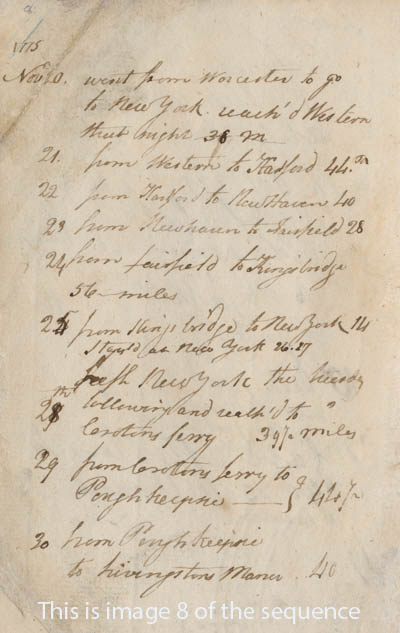 8
1775
Nov. 20. went from Worcester to go
to New York. reach'd Western
that night 36 m
21. from Western to Harford 44. m
22 from Harford to New Haven 40
23 from Newhaven to Fairfield 28
24 from fairfield to Kingsbridge
56 miles
25 from Kings bridge to New York 14
Stay'd at New York 26. 27
New York the
28 th following and reach'd to
Crotons ferry 39½ miles
29 from Crotons ferry to
Poughkeepsie — } 44½
30 from Poughkeepsie
to Livingston Manor. 40
This is image 8 of the sequence